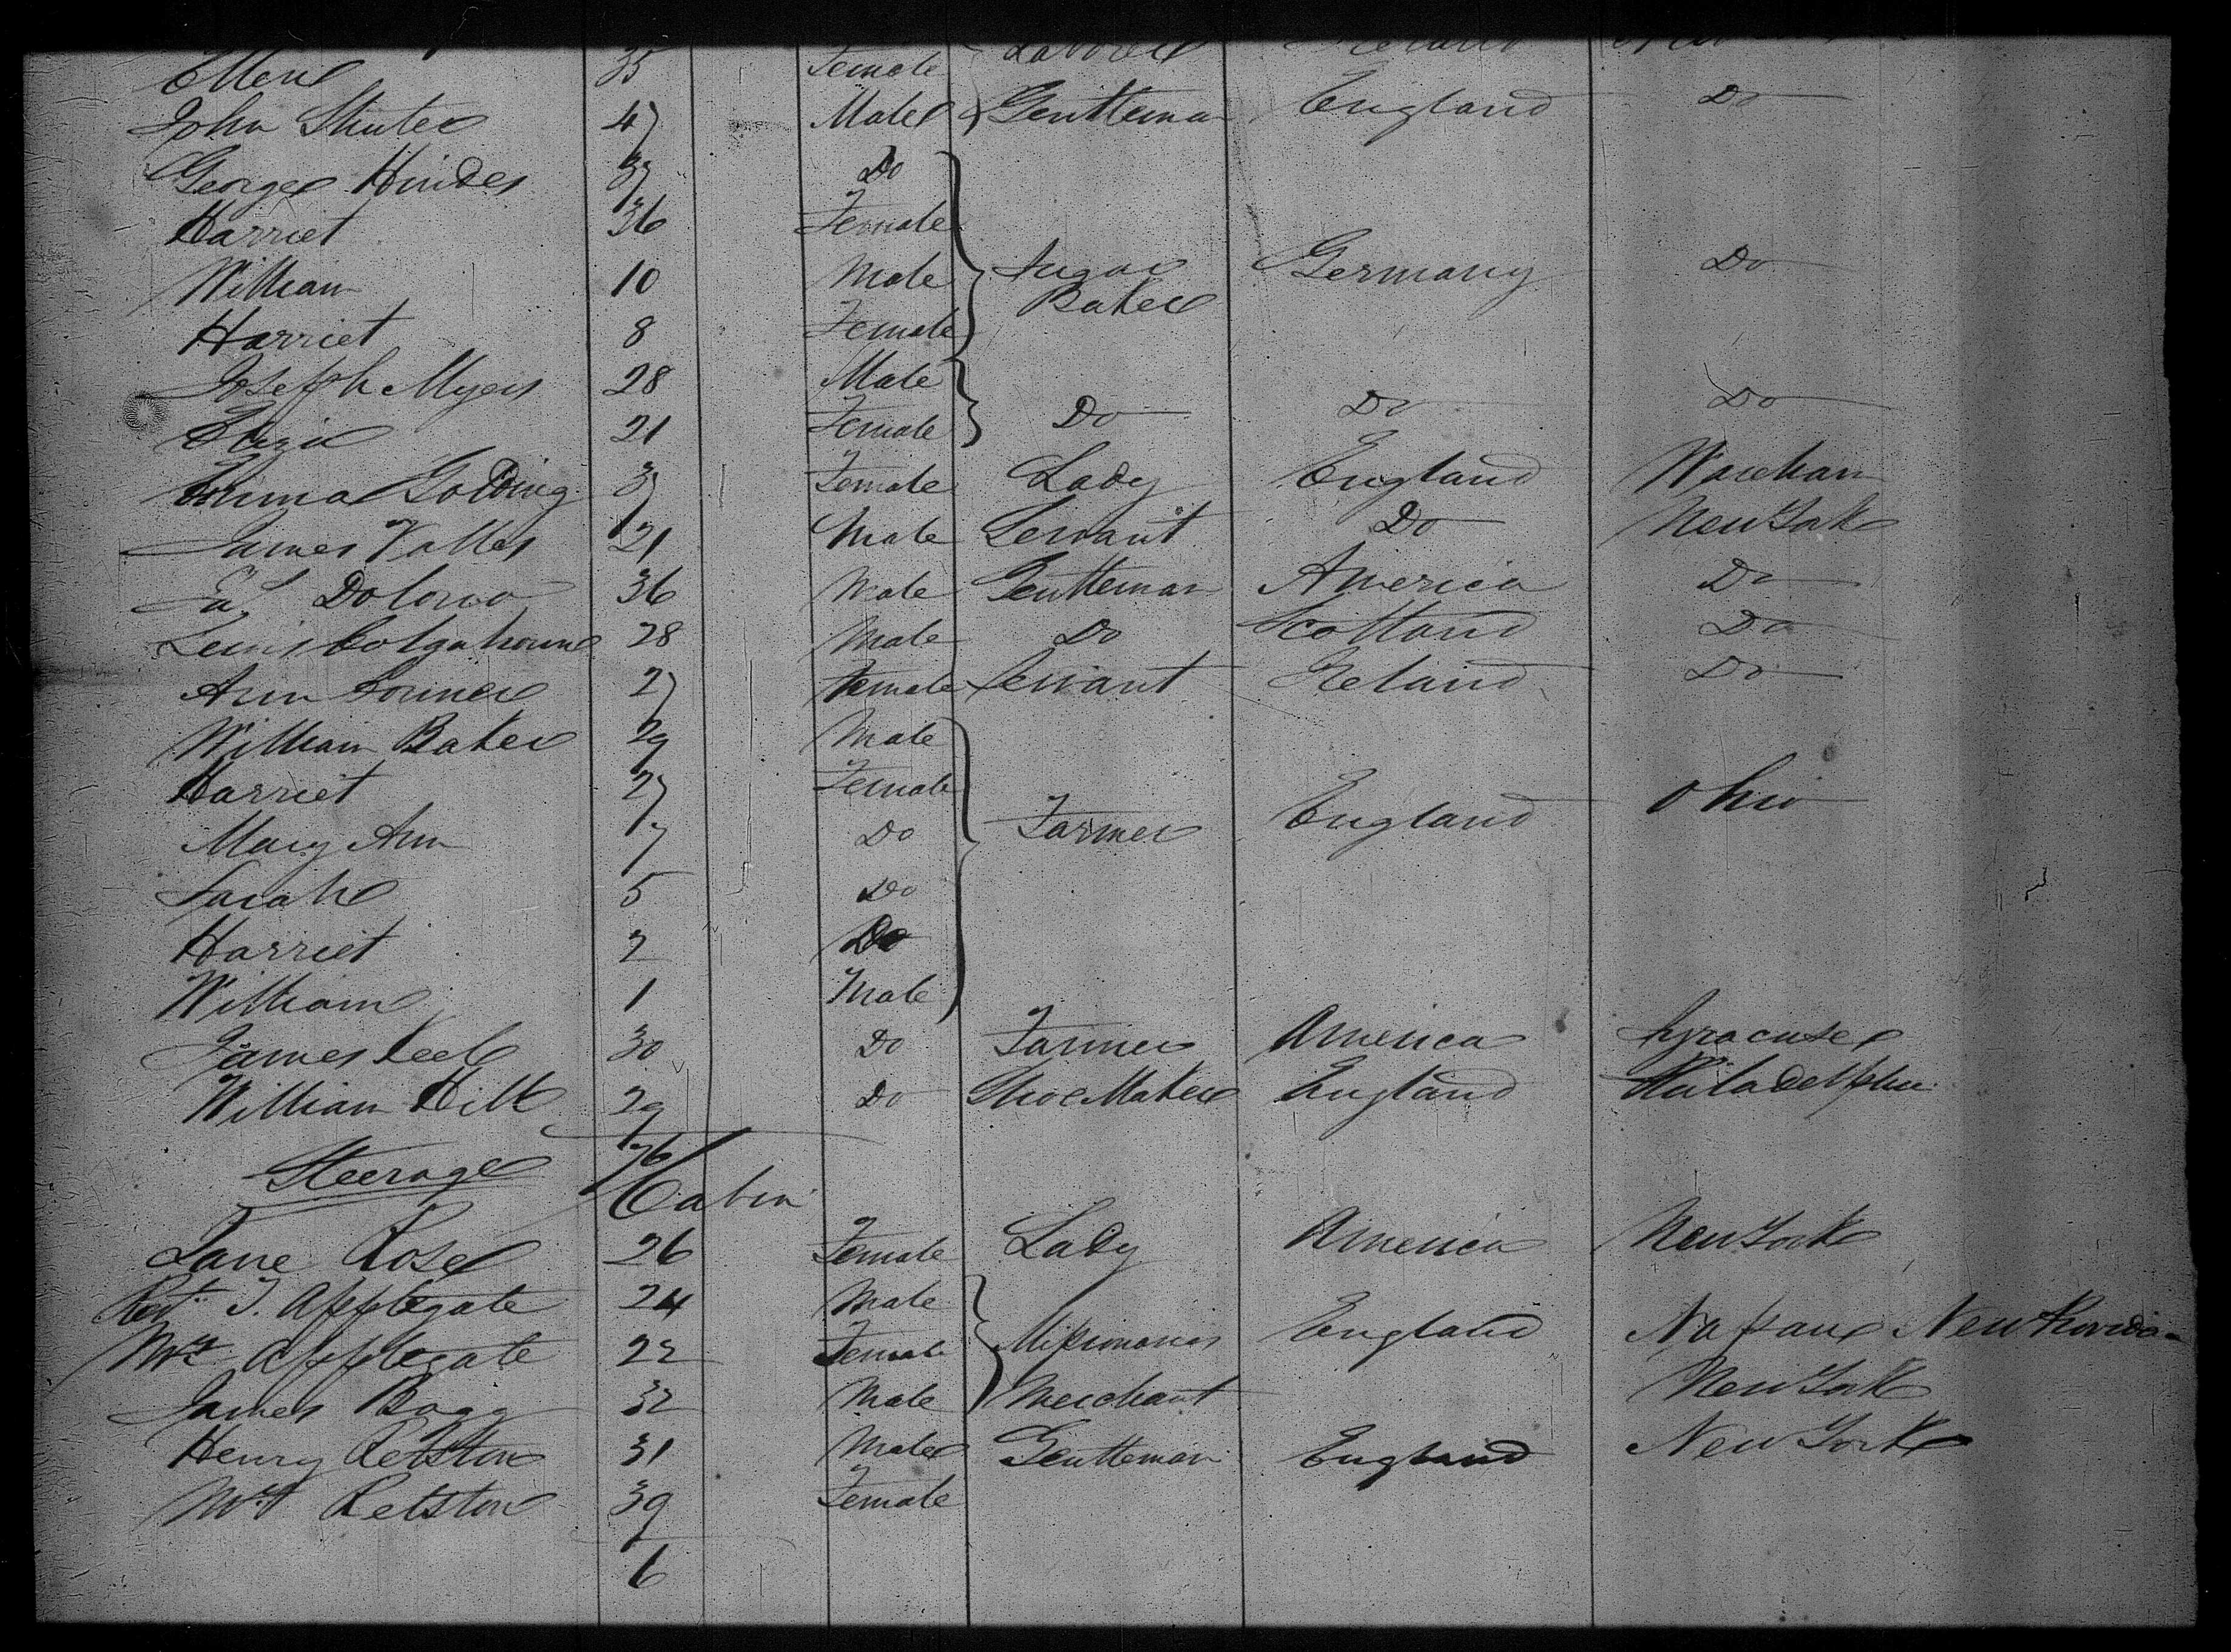 Ellen 35 Female
John Shuter 47 Male Gentleman England Do
George Hindes 37 Do
Harriet 36 Female
William 10 Male Sugar Baker Germany Do
Harriet 8 Female
Joseph Myers 28 Male
Eliza 21 Female Do Do Do
Emma Golding 37 Female Lady England Wareham
James Valler 21 Male Servant Do New York
36 Male Gentleman America Do
Lewis Colquhoune 28 Male Do Scotland Do
Ann 27 Female Servant Ireland Do
William Baker 29 Male
Harriet 27 Female
Mary Ann 7 Do Farmer England Ohio
Sarah 5 Do
Harriet 2 Do
William 1 Male
James Keel 30 Do Farmer America Syracuse
William Hill 29 Do Shoe Maker England Philadelphia
76
Steerage
Cabin
Jane Rose 26 Female Lady America New York
Revd. T. Applegate 24 Male
Mrs Applegate 22 Female Missionary England Nassau New Providence
James Bogg 32 Male Merchant New York
Henry Retston 31 Male Gentleman England New York
Mrs Retston 39 Female
6